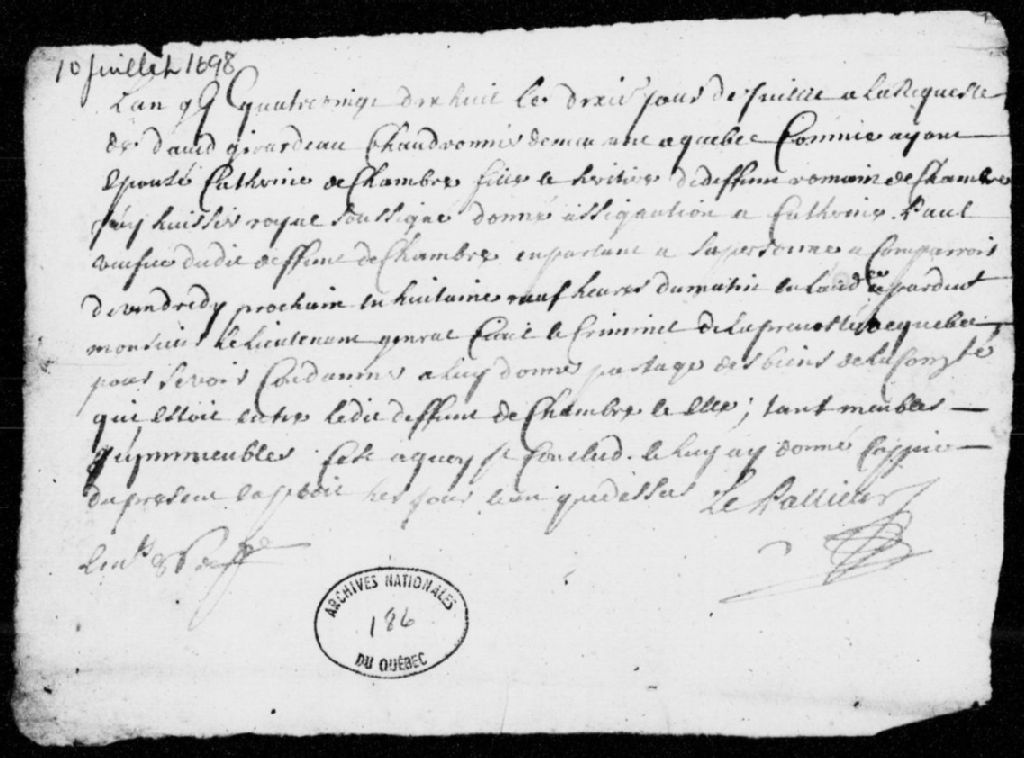 10 Juillet 1698
Lan g G quatrevingt dix huit le dixie jour de Juillet a la Requeste
de david girardeau Chaudronnie demeurant a quebec Comme ayant
Epousé Catherine de Chambre fille et heritiere de deffunt romain de Chambre
Jay huissier royal soussigné donné assignation a Catherine Paul
veufve dudit deffunt de Chambre en parlant a sa personne a Comparroir
de vendredy prochain en huitaine neuf heures du matin pardevt
monsieur le lieutenant general Civil et Criminel de la prevosté de quebec
pour se voir Condamne a luy donne partage des biens de la
qui estoit entre ledit deffunt de Chambre et Elle ; tant meubles
qu immeubles Cest a quoy Je Conclud. et luy ay donné Coppie
du present exploit les jour et an que dessus Le Pallieur
ARCHIVES NATIONALES
186
DU QUÉBEC